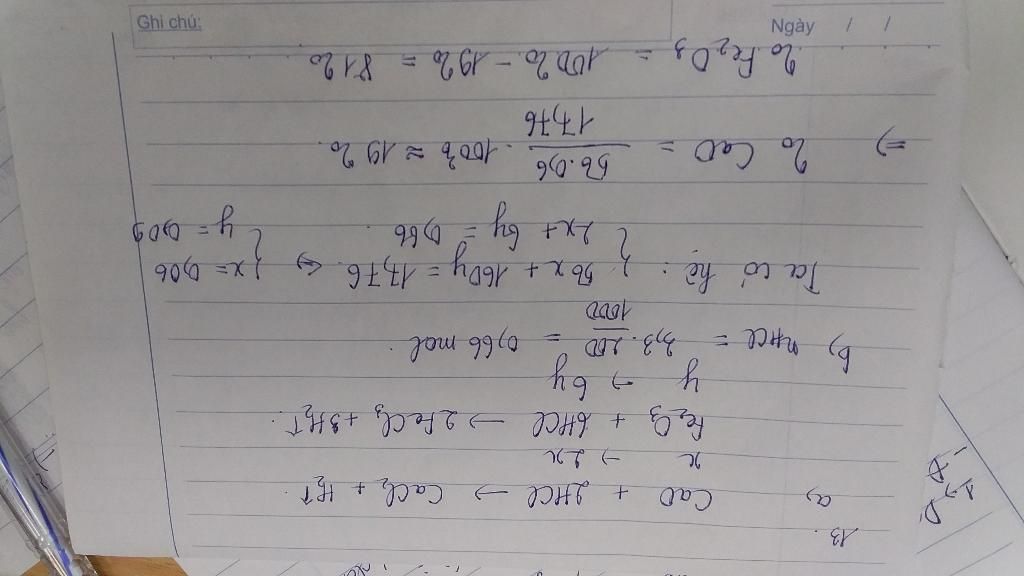 Ghi chú:
Ngày / /
13.
a, CaO + 2HCl → CaCl₂ + H₂↑.
x → 2x
Fe₂O₃ + 6HCl → 2FeCl₃ + 3H₂↑.
y → 6y
b, nHCl = 3,3.200/1000 = 0,66 mol.
Ta có hệ: { 56x + 160y = 17,76 ⇔ { x = 0,06
2x + 6y = 0,66. y = 0,09
⇒ % CaO = 56.0,6/17,76 . 100% ≈ 19%.
% Fe₂O₃ = 100% - 19% = 81%